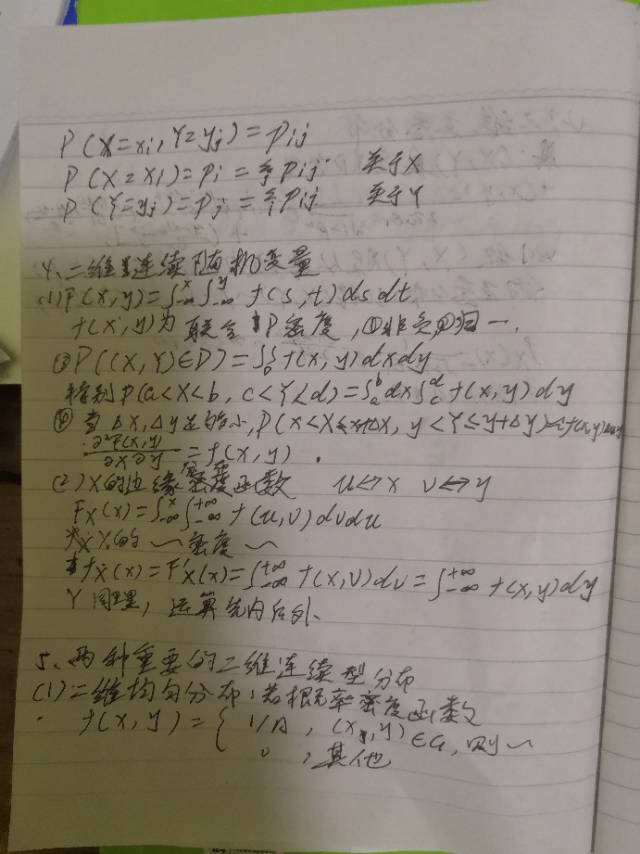 P(X=xi,Y=yj)=pij
P(X=xi)=pi=∑pij 关于X
P(Y=yj)=pj=∑pij 关于Y
4、二维连续随机变量
(1)F(x,y)=∫-∞^x∫-∞^y f(s,t)dsdt
f(x,y)为联合P密度,①非负②归一.
③P((X,Y)∈D)=∫∫D f(x,y)dxdy
特别P(a<X<b,c<Y<d)=∫a^b dx∫c^d f(x,y)dy
④当Δx,Δy足够小,P(x<X≤x+Δx,y<Y≤y+Δy)≈f(x,y)ΔxΔy
∂²F(x,y)/∂x∂y=f(x,y).
(2)X的边缘函数 u<->x v<->y
Fx(x)=∫-∞^x∫-∞^+∞ f(u,v)dvdu
X的~密度~
fx(x)=F'x(x)=∫-∞^+∞ f(x,v)dv=∫-∞^+∞ f(x,y)dy
Y同理,运算先内后外.
5、两种重要的二维连续型分布
(1)二维均匀分布:若概率密度函数
f(x,y)={1/A,(x,y)∈G,则~
0,其他